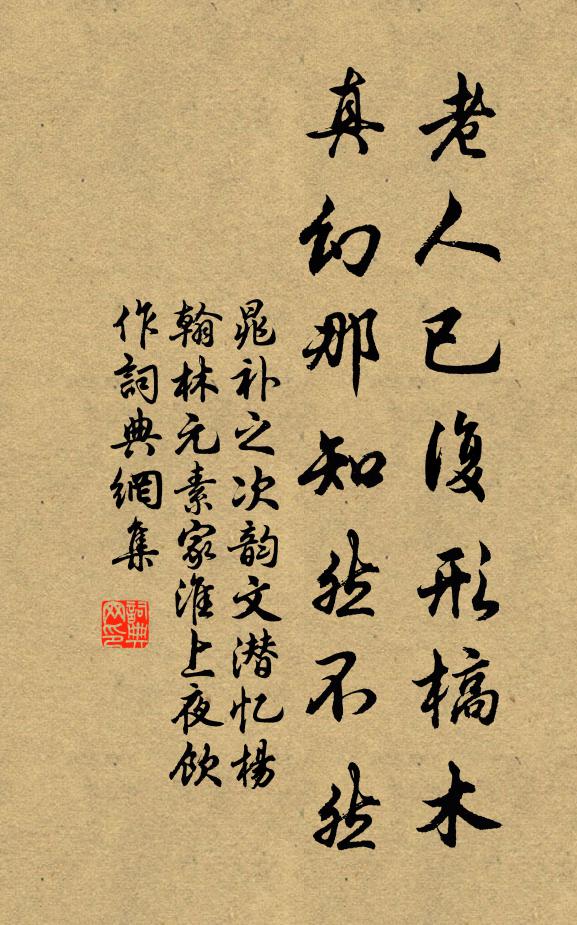 老人已復形槁木
真幻那知然不然
晁补之次韵文潜忆杨
翰林元素家淮上夜飲
作詞典網集
詞典网印